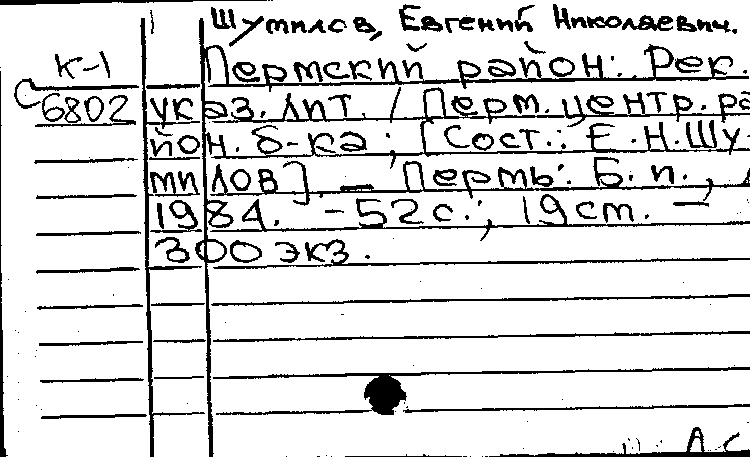 Шумилов, Евгений Николаевич.
К-1 Пермский район: Рек.
С6802 указ. лит. / Перм. центр. ра
йон. б-ка ; [Сост.: Е.Н.Шу-
милов] . — Пермь: Б. и.,
1984. - 52 с.; 19 cm. —
300 экз.